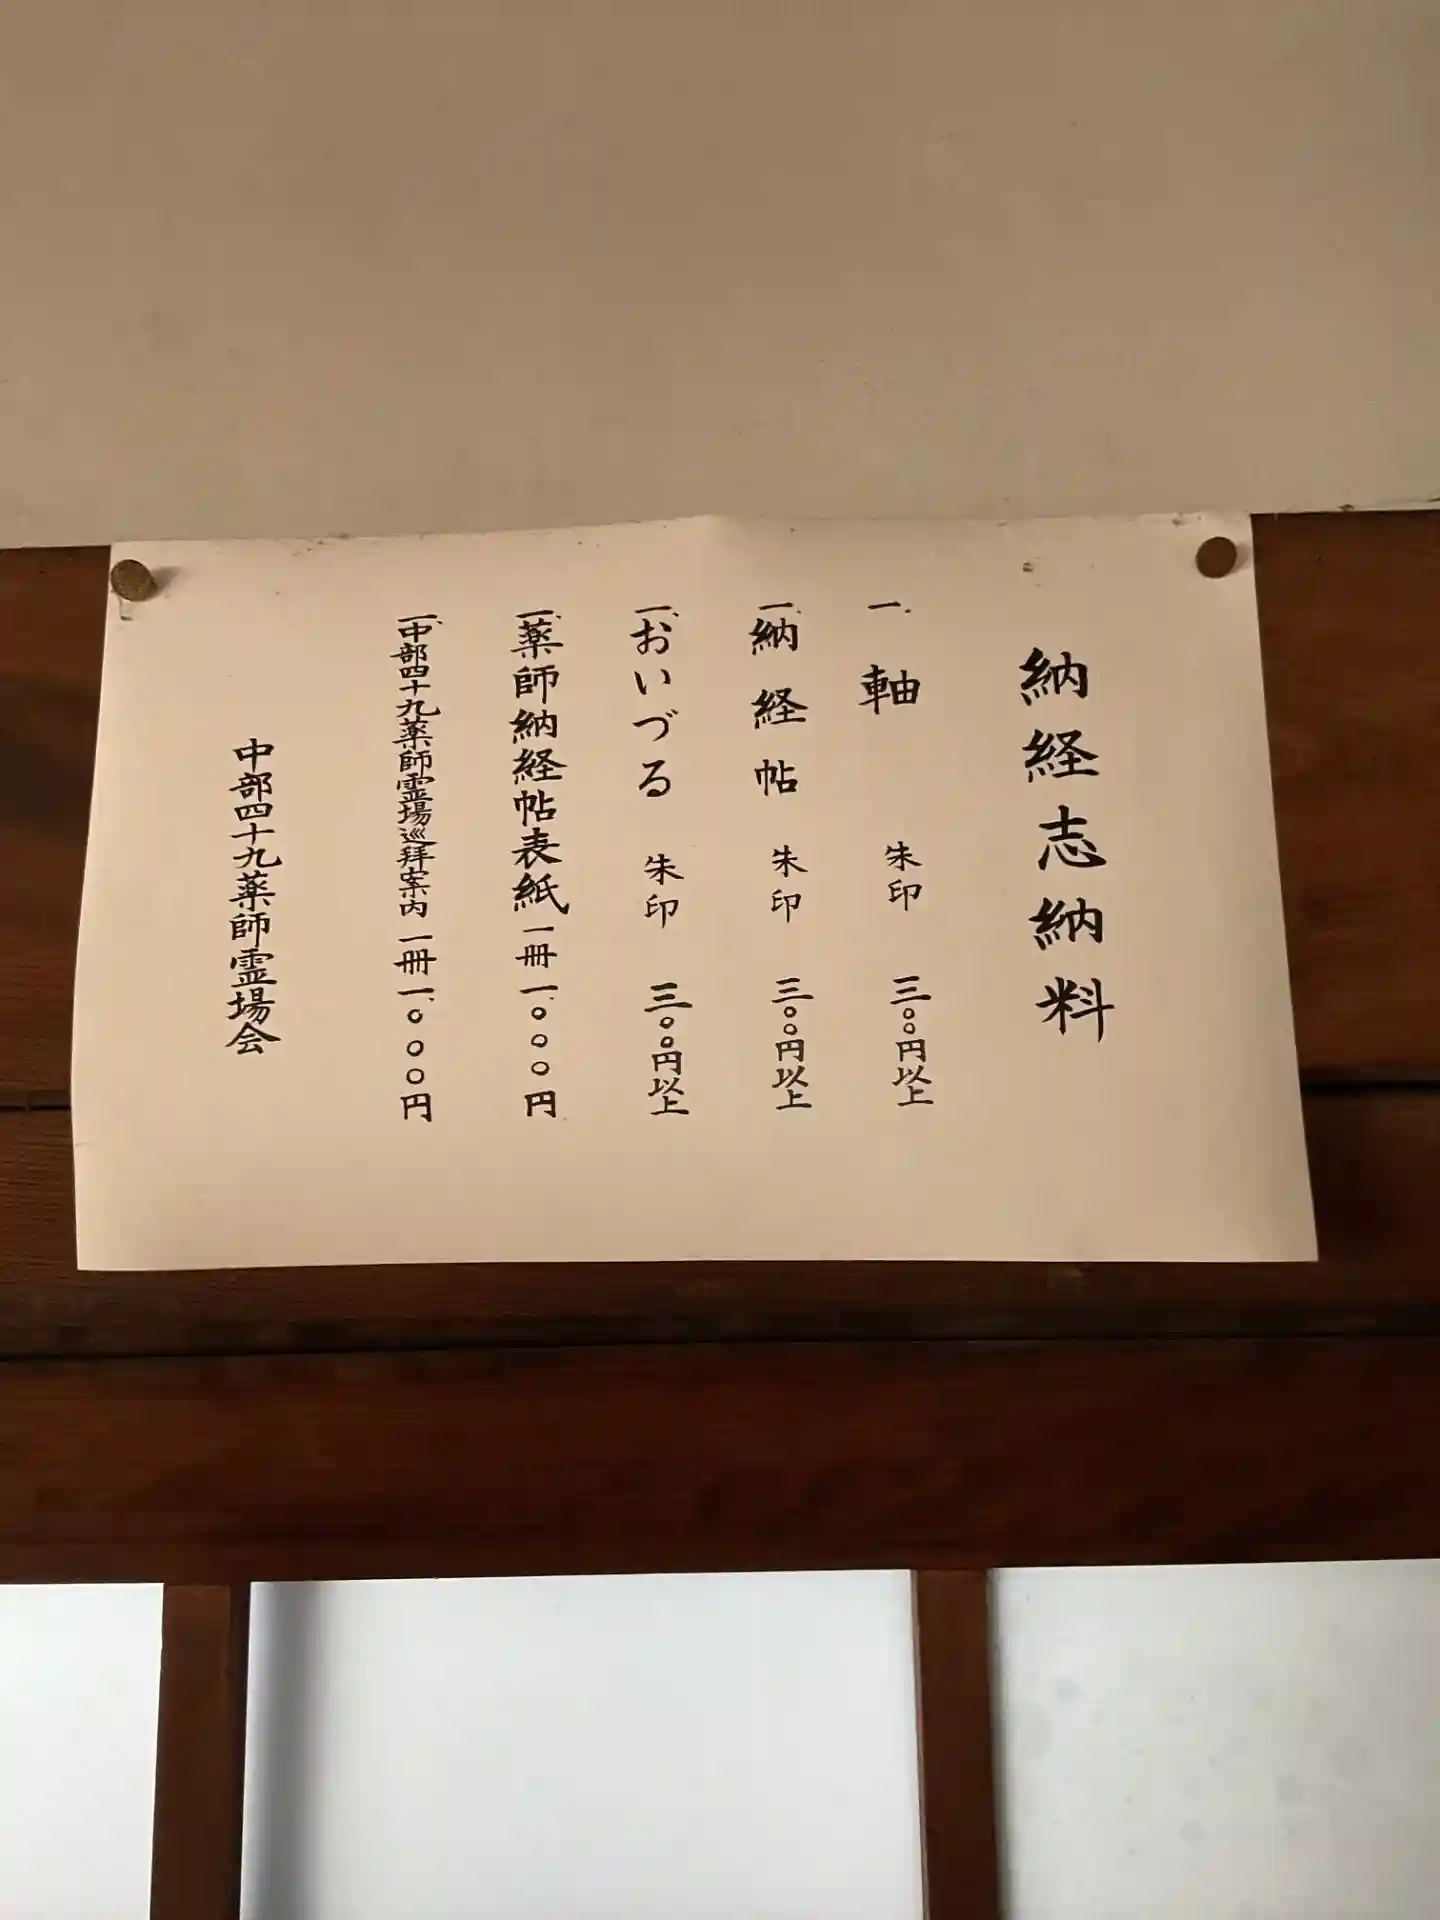 納経志納料
一、軸 朱印 三〇〇円以上
一、納経帖 朱印 三〇〇円以上
一、おいづる 朱印 三〇〇円以上
一、薬師納経帖表紙 一冊 一、〇〇〇円
一、中部四十九薬師霊場巡拜案内 一冊 一、〇〇〇円
中部四十九薬師霊場会